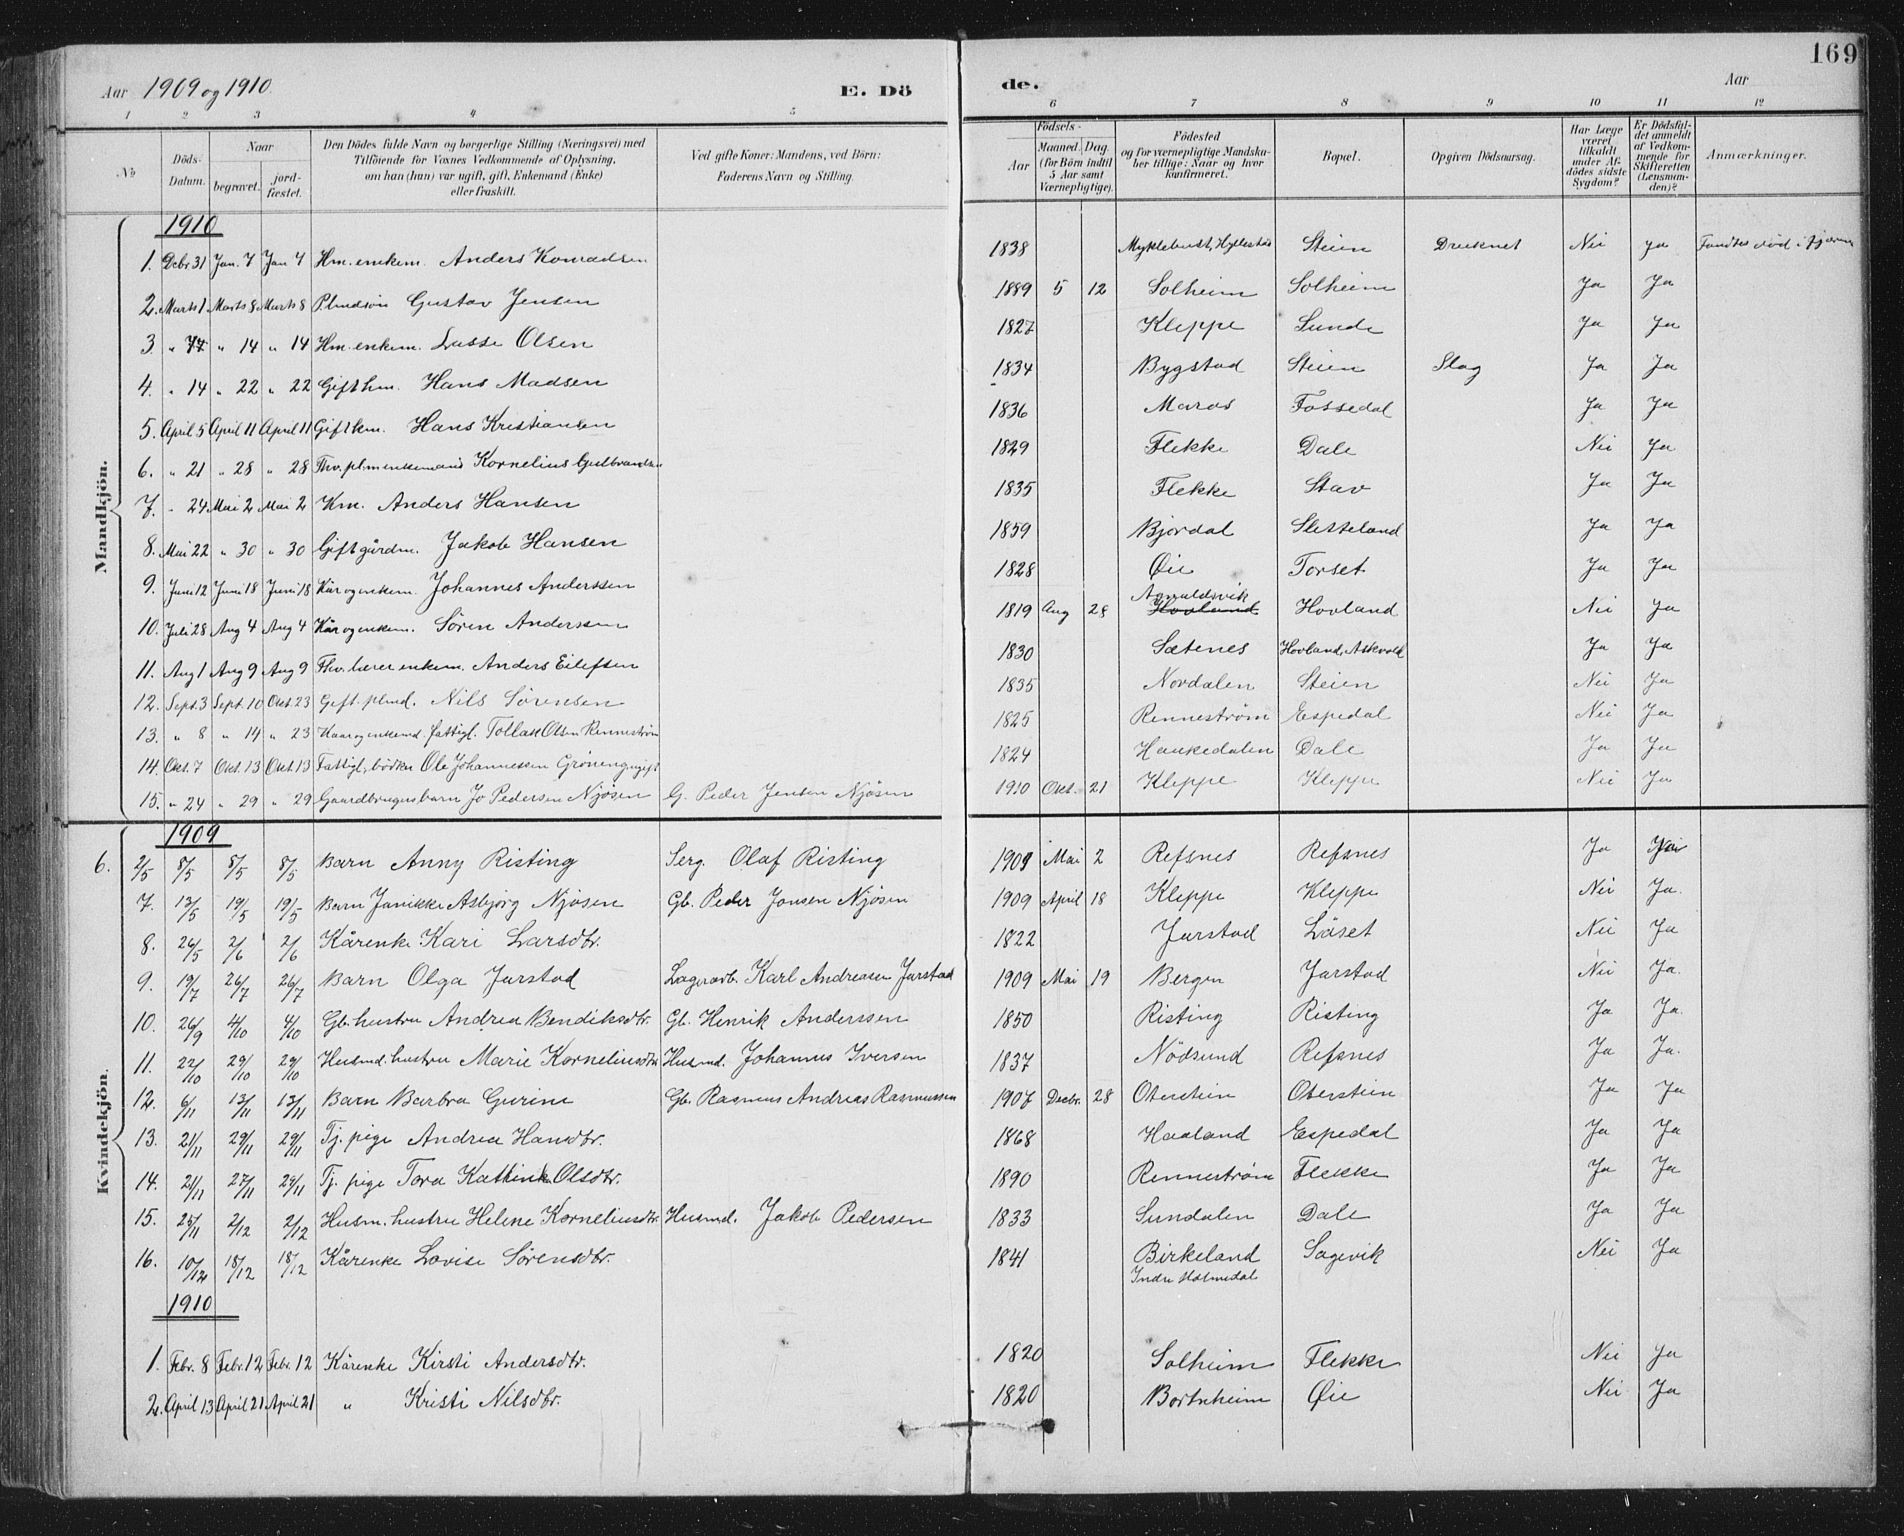 169
Aar 1909 og 1910.
E. Dö
de.
Aar
1 2 3 4 5 6 7 8 9 10 11 12
No
Döds-Datum.
Naar
begravet.
jord-fæstet.
Den Dödes fulde Navn og borgerlige Stilling (Næringsvei) med
Tilföiende for Voxnes Vedkommende af Oplysning,
om han (hun) var ugift, gift, Enkemand (Enke)
eller fraskilt.
Ved gifte Koner: Mandens, ved Börn:
Faderens Navn og Stilling.
Födsels-
Aar
Maaned. Dag.
(for Börn indtil
5 Aar samt
Værnepligtige).
Födested
og for værnepligtige Mandska-
ber tillige: Naar og hvor
konfirmeret.
Bopæl.
Opgiven Dödsaarsag.
Har Læge
været
tilkaldt
under Af-
dödes sidste
Sygdom?
Er Dödsfal-
det anmeldt
af Vedkom-
mende for
Skifteretten
(Lensman-
den)?
Anmærkninger.
Mandkjön.
1910
1. Decbr 31 Jan. 4 Jan 4 Hm. enkem. Anders Konradsen 1838 Myklebust, Hyllestad Steien Druknet Nei Ja Fandtes död i fjæren
2. Marts 1 Marts 8 Marts 8 Plmdsön Gustav Jensen 1889 5 12 Solheim Solheim Ja Ja
3 " " 14 " 14 Hm. enkem. Lasse Olsen 1827 Kleppe Sunde Ja Ja
4. " 14 " 22 " 22 Gift hm. Hans Madsen 1834 Bygstad Steien Slag Ja Ja
5. April 5 April 11 April 11 Gift hm. Hans Kristiansen 1836 Maraas Fossedal Ja Ja
6. " 21 " 28 " 28 Fhv. plm enkemand Kornelius Gulbrandsen 1829 Flekke Dale Nei Ja
7. " 24 Mai 2 Mai 2 Km. Anders Hansen 1835 Flekke Stav Ja Ja
8. Mai 22 " 30 " 30 Gift gårdm. Jakob Hansen 1859 Bjordal Sletteland Ja Ja
9. Juni 12 Juni 18 Juni 18 Kår og enkem. Johannes Anderssen 1828 Øie Torset Ja Ja
10. Juli 28 Aug 4 Aug 4 Kår og enkem. Sören Anderssen 1819 Aug 28 Hovland Hovland Nei Ja
11. Aug 1 Aug 9 Aug 9 Fhv. lærer enkem. Anders Eilefsen 1830 Sætenes Hovland, Askvold Ja Ja
12. Sept. 3 Sept. 10 Okt. 23 Gift. plmd. Nils Sörensen 1835 Nordalen Steien Nei Ja
13. " 8 " 14 " 23 Kaar og enkemd. fattigl. Tollak Olsen Renneström 1825 Renneström Espedal Nei Ja
14. Okt. 7 Okt. 13 Okt. 13 Fattigl. bödker Ole Johannesen Gröneng ugift 1824 Haukedalen Dale Ja Ja
15. " 24 " 29 " 29 Gaardbrugersbarn Jo Pedersen Njösen G. Peder Jensen Njösen 1910 Okt. 21 Kleppe Kleppe Nei Ja
Kvindekjön.
1909
6. 2/5 8/5 8/5 8/5 Barn Anny Risting Serg. Olaf Risting 1909 Mai 2 Refsnes Refsnes Ja
7. 13/5 19/5 19/5 Barn Janikke Asbjörg Njösen Gb. Peder Jonsen Njösen 1909 April 18 Kleppe Kleppe Nei Ja.
8. 26/5 2/6 2/6 Kårenke Kari Larsdtr. 1822 Jarstad Låset Nei Ja
9. 19/7 26/7 26/7 Barn Olga Jarstad Lagerarb. Karl Andreasen Jarstad 1909 Mai 19 Bergen Jarstad Nei Ja.
10. 26/9 4/10 4/10 Gb. hustru Andrea Bendiksdtr. Gb. Henrik Anderssen 1850 Risting Risting Ja Ja.
11. 22/10 29/10 29/10 Husmd. hustru Marie Korneliusdtr Husmd. Johannes Iversen 1837 Nödsund Refsnes Ja Ja.
12. 6/11 13/11 13/11 Barn Barbra Gurine Gb. Rasmus Andreas Rasmussen 1907 Decbr. 28 Oterstein Oterstein Ja Ja
13. 21/11 29/11 29/11 Tj. pige Andrea Hansdtr. 1868 Haaland Espedal Ja Ja
14. 21/11 27/11 29/11 Tj. pige Tora Kathinka Olsdtr. 1890 Renneström Flekke Ja Ja
15. 25/11 2/12 2/12 Husm. hustru Helene Korneliusdtr. Husmd. Jakob Pedersen 1833 Sundalen Dale Ja Ja
16. 10/12 18/12 18/12 Kårenke Lovise Sörensdtr. 1841 Birkeland Sagevik Nei Ja
Indre Holmedal
1910
1. Febr. 8 Febr. 12 Febr. 12 Kårenke Kirsti Andersdtr. 1820 Solheim Flekke Nei Ja
2. April 13 April 21 April 21 " Kristi Nilsdtr. 1820 Bortnheim Øie Nei Ja